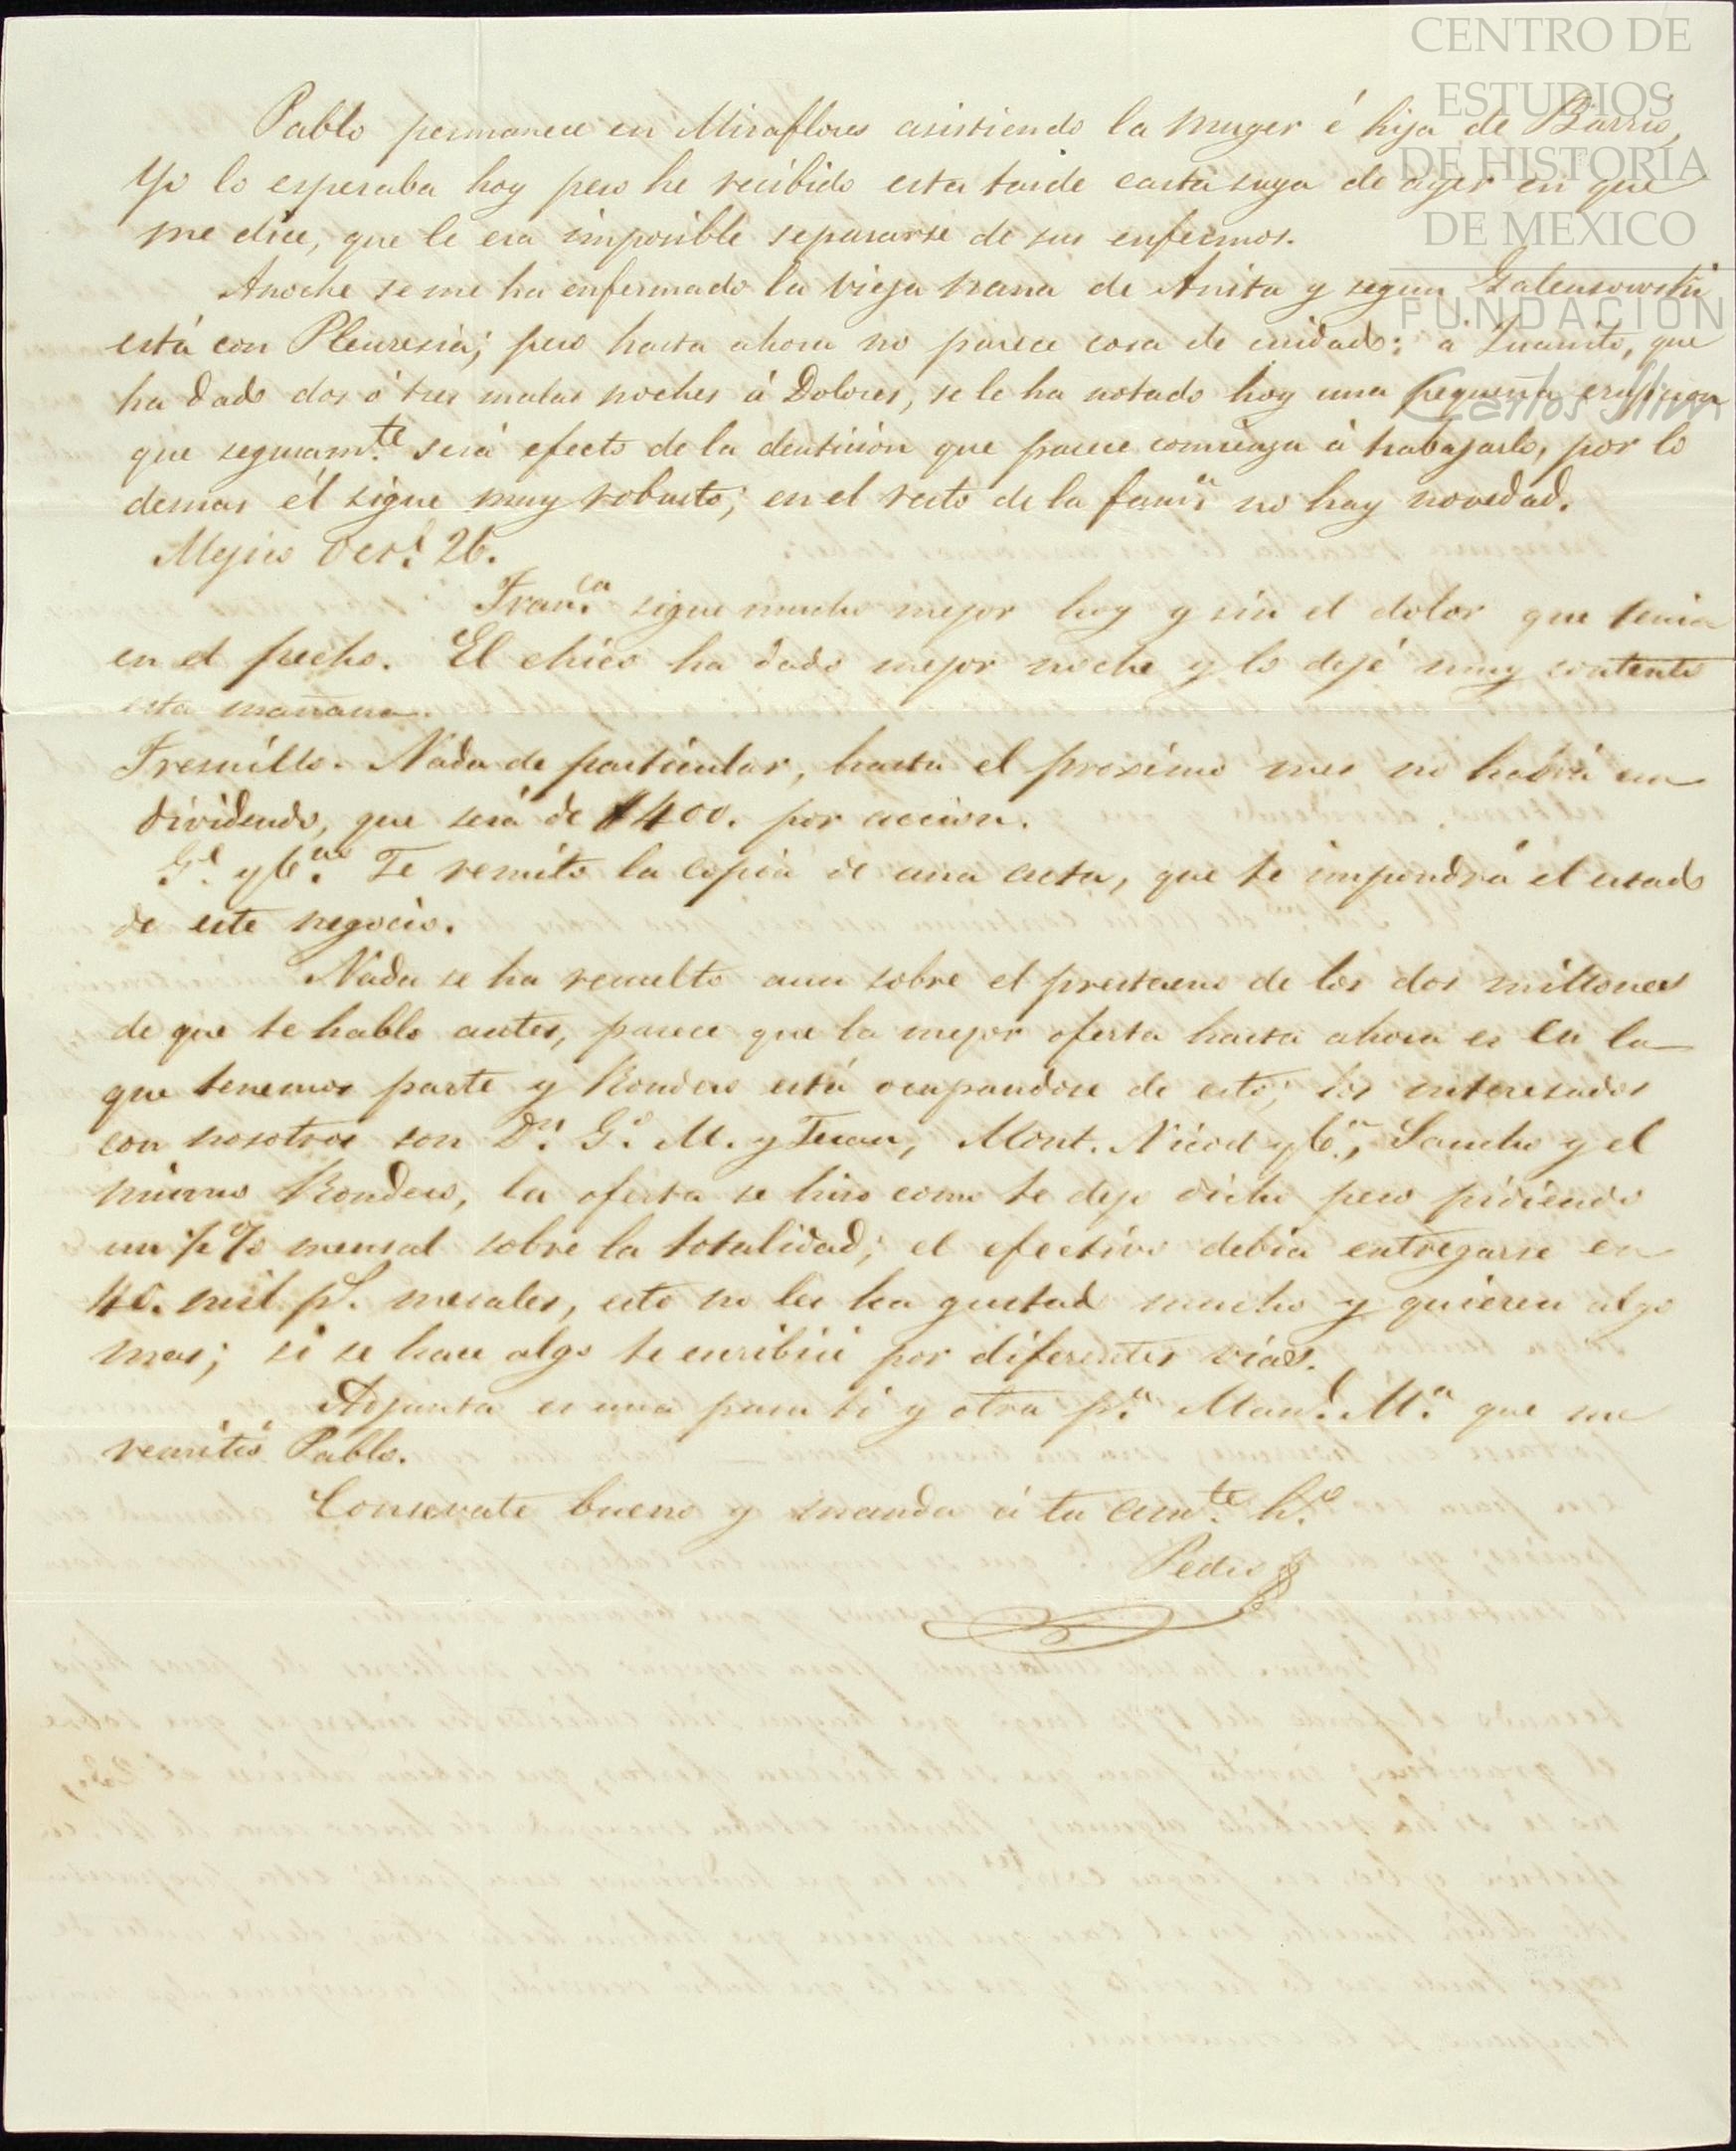 CENTRO DE
ESTUDIOS
DE HISTORIA
DE MEXICO
FUNDACION
Carlos Slim
Pablo permanece en Miraflores asistiendo la muger é hija de Barrio,
Yo lo esperaba hoy pero he recibido esta tarde carta suya de ayer en que
me dice, que le era imposible separarse de sus enfermos.
Anoche se me ha enfermado la vieja nana de Anita y segun Galenzowski
está con Pleuresia; pero hasta ahora no parece cosa de cuidado; á Juanito, que
ha dado dos ó tres malas noches á Dolores, se le ha notado hoy una pequeña erupcion
que seguramte. será efecto de la denticion que parece comienza á trabajarlo, por lo
demas él sigue muy robusto; en el resto de la fama. no hay novedad.
Mejico Oct. 26.
Franca. sigue mucho mejor hoy y sin el dolor que tenia
en el pecho. El chico ha dado mejor noche y lo dejé muy contento
esta mañana.
Fresnillo. Nada de particular, hasta el proximo mes no habrá un
dividendo, que será de $400. por accion.
Gl. y Ca. Te remito la copia de una acta, que te impondrá el estado
de este negocio.
Nada se ha resuelto aun sobre el prestamo de los dos millones
de que te hablo antes, parece que la mejor oferta hasta ahora es en la
que tenemos parte y Rondero está ocupandose de esto; los interesados
con nosotros son Dn. Go. M. y Teran, Mont. Nicod y Ca., Sancho y el
mismo Rondero, la oferta se hizo como te dejo dicho pero pidiendo
un ½ % mensal sobre la totalidad; el efectivo debia entregarse en
40. mil ps. mesales, esto no les ha gustad mucho y quieren algo
mas; si se hace algo te escribiré por diferentes vias.
Adjunta es una para ti y otra pa. Manl. Ma. que me
remitió Pablo.
Conservate bueno y manda á tu amte. ho.
Pedro